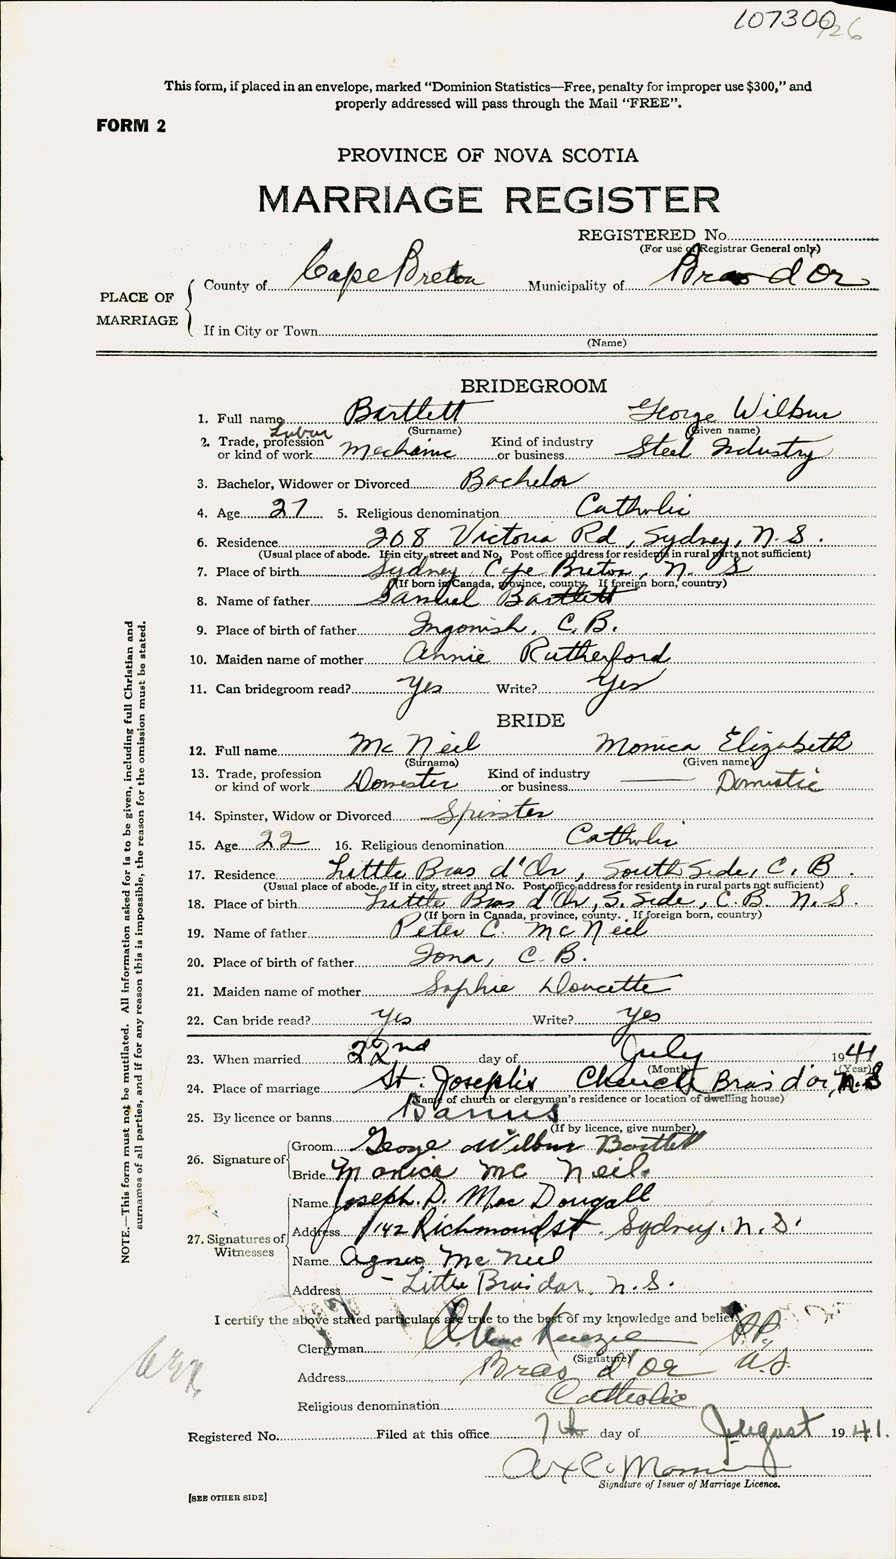 107300
This form, if placed in an envelope, marked "Dominion Statistics—Free, penalty for improper use $300," and
properly addressed will pass through the Mail "FREE".
FORM 2
PROVINCE OF NOVA SCOTIA
MARRIAGE REGISTER
REGISTERED No.
(For use of Registrar General only)
PLACE OF MARRIAGE
County of Cape Breton Municipality of Bras d'Or
If in City or Town
(Name)
BRIDEGROOM
1. Full name Bartlett George Wilbur
(Surname) (Given name)
2. Trade, profession or kind of work Mechanic Kind of industry or business Steel Industry
3. Bachelor, Widower or Divorced Bachelor
4. Age 27 5. Religious denomination Catholic
6. Residence 208 Victoria Rd, Sydney, N.S.
(Usual place of abode. If in city, street and No. Post office address for residents in rural parts not sufficient)
7. Place of birth Sydney Cape Breton, N. S
(If born in Canada, province, county. If foreign born, country)
8. Name of father Samuel Bartlett
9. Place of birth of father Ingonish, C.B.
10. Maiden name of mother Annie Rutherford
11. Can bridegroom read? Yes Write? Yes
BRIDE
12. Full name Mc Neil Monica Elizabeth
(Surname) (Given name)
13. Trade, profession or kind of work Domestic Kind of industry or business — Domestic
14. Spinster, Widow or Divorced Spinster
15. Age 22 16. Religious denomination Catholic
17. Residence Little Bras d'Or, South Side, C. B.
(Usual place of abode. If in city, street and No. Post office address for residents in rural parts not sufficient)
18. Place of birth Little Bras d'Or, S. Side, C.B. N.S.
(If born in Canada, province, county. If foreign born, country)
19. Name of father Peter C. McNeil
20. Place of birth of father Iona, C.B.
21. Maiden name of mother Sophie Doucette
22. Can bride read? Yes Write? Yes
23. When married 22nd day of July 1941
(Month) (Year)
24. Place of marriage St. Joseph's Church Bras d'or, N.S
(Name of church or clergyman's residence or location of dwelling house)
25. By licence or banns Banns
(If by licence, give number)
26. Signature of
Groom George Wilbur Bartlett
Bride Monica Mc Neil.
27. Signatures of Witnesses
Name Joseph. D. Mac Dougall
Address 142 Richmond st. Sydney. N.S.
Name Agnes McNeil
Address - Little Bras dor, N.S.
I certify the above stated particulars are true to the best of my knowledge and belief.
Clergyman A. MacKenzie P.P.
(Signature)
Address Bras d'Or N.S.
Religious denomination Catholic
Registered No. Filed at this office 7th day of August 1941.
Signature of Issuer of Marriage Licence.
[SEE OTHER SIDE]
NOTE.—This form must not be mutilated. All information asked for is to be given, including full Christian and
surnames of all parties, and if for any reason this is impossible, the reason for the omission must be stated.